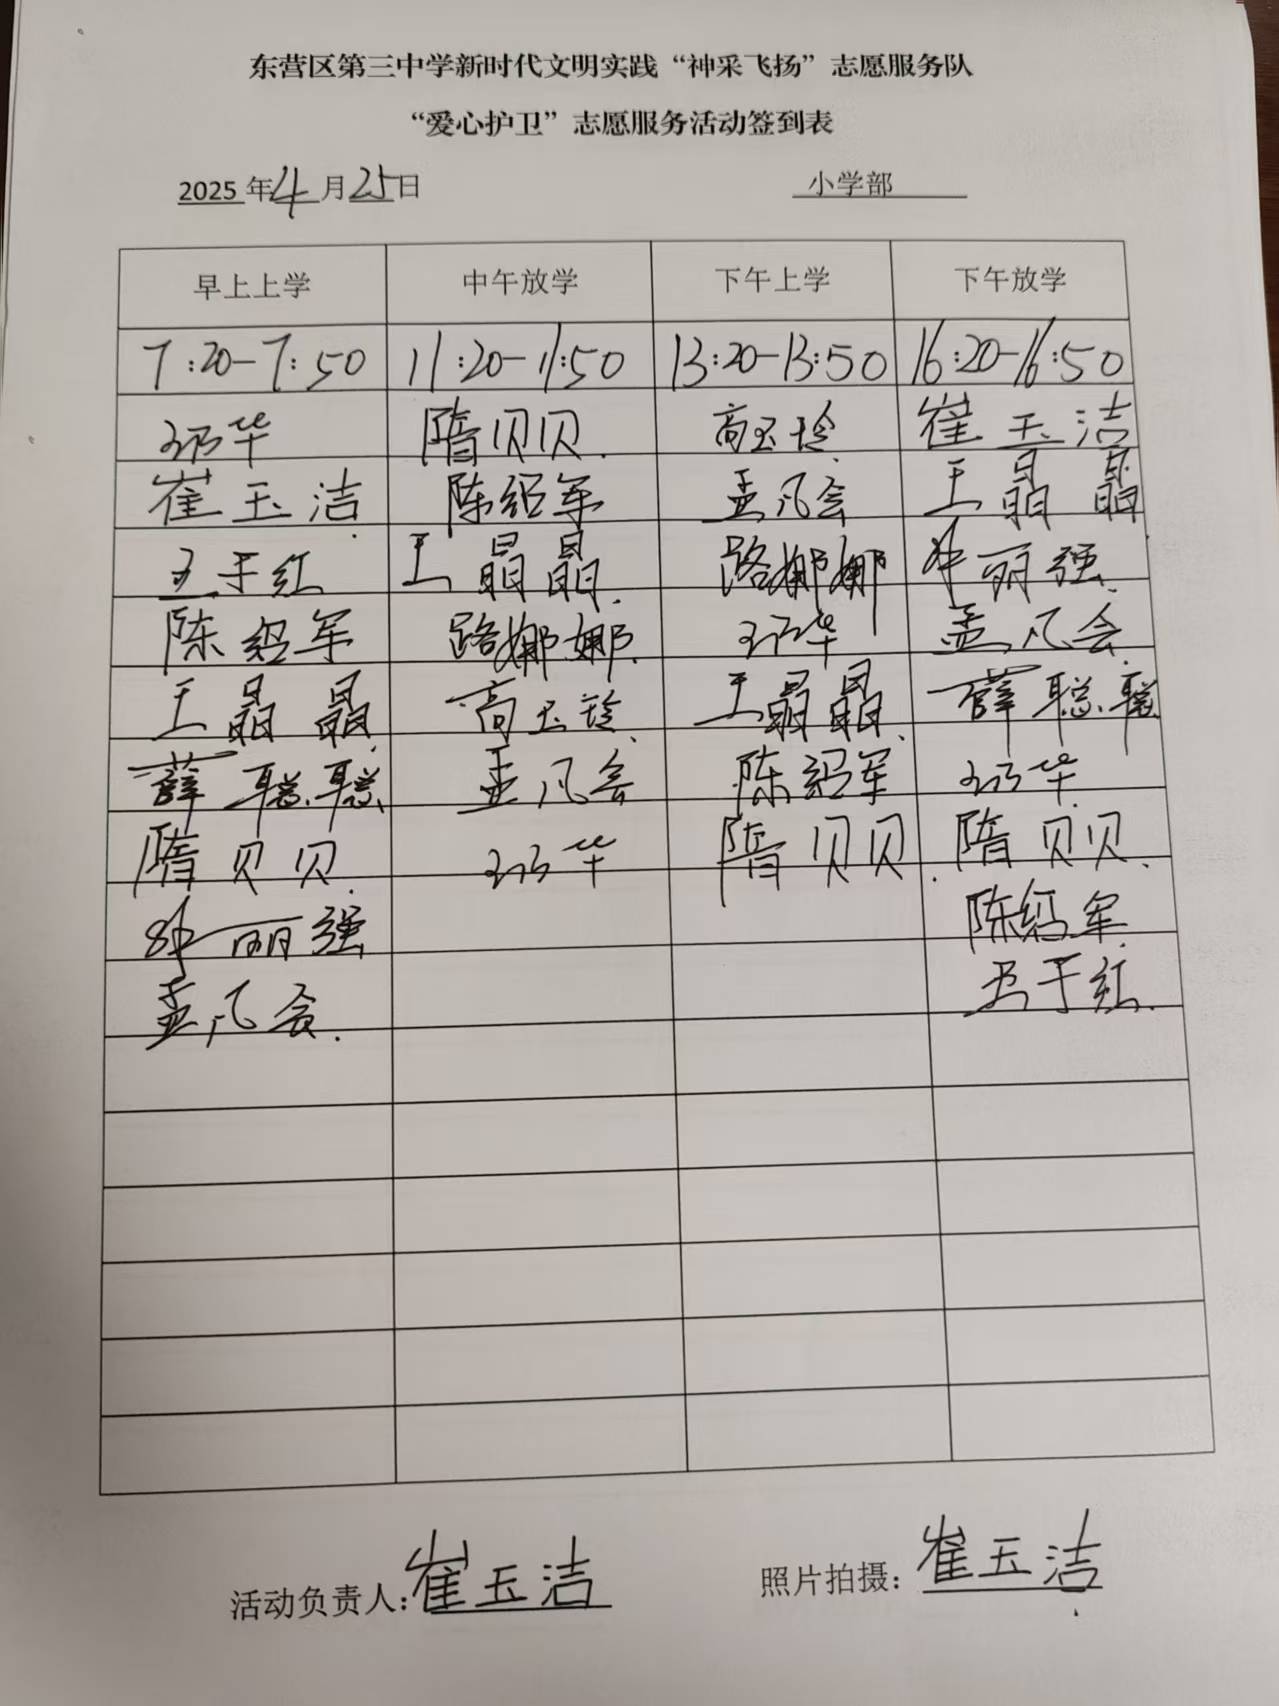 东营区第三中学新时代文明实践“神采飞扬”志愿服务队
“爱心护卫”志愿服务活动签到表
2025年4月25日 小学部
早上上学 中午放学 下午上学 下午放学
7:20-7:50 11:20-11:50 13:20-13:50 16:20-16:50
华 隋贝贝. 高玉玲. 崔玉洁
崔玉洁. 陈绍军 孟凡会 王晶晶
于红 王晶晶. 路娜娜 丽强.
陈绍军 路娜娜. 华 孟凡会.
王晶晶. 高玉玲. 王晶晶. 薛聪聪
薛聪聪 孟凡会 陈绍军 华.
隋贝贝. 华 隋贝贝. 隋贝贝.
丽强 陈绍军.
孟凡会. 于红.
活动负责人:崔玉洁 照片拍摄:崔玉洁.